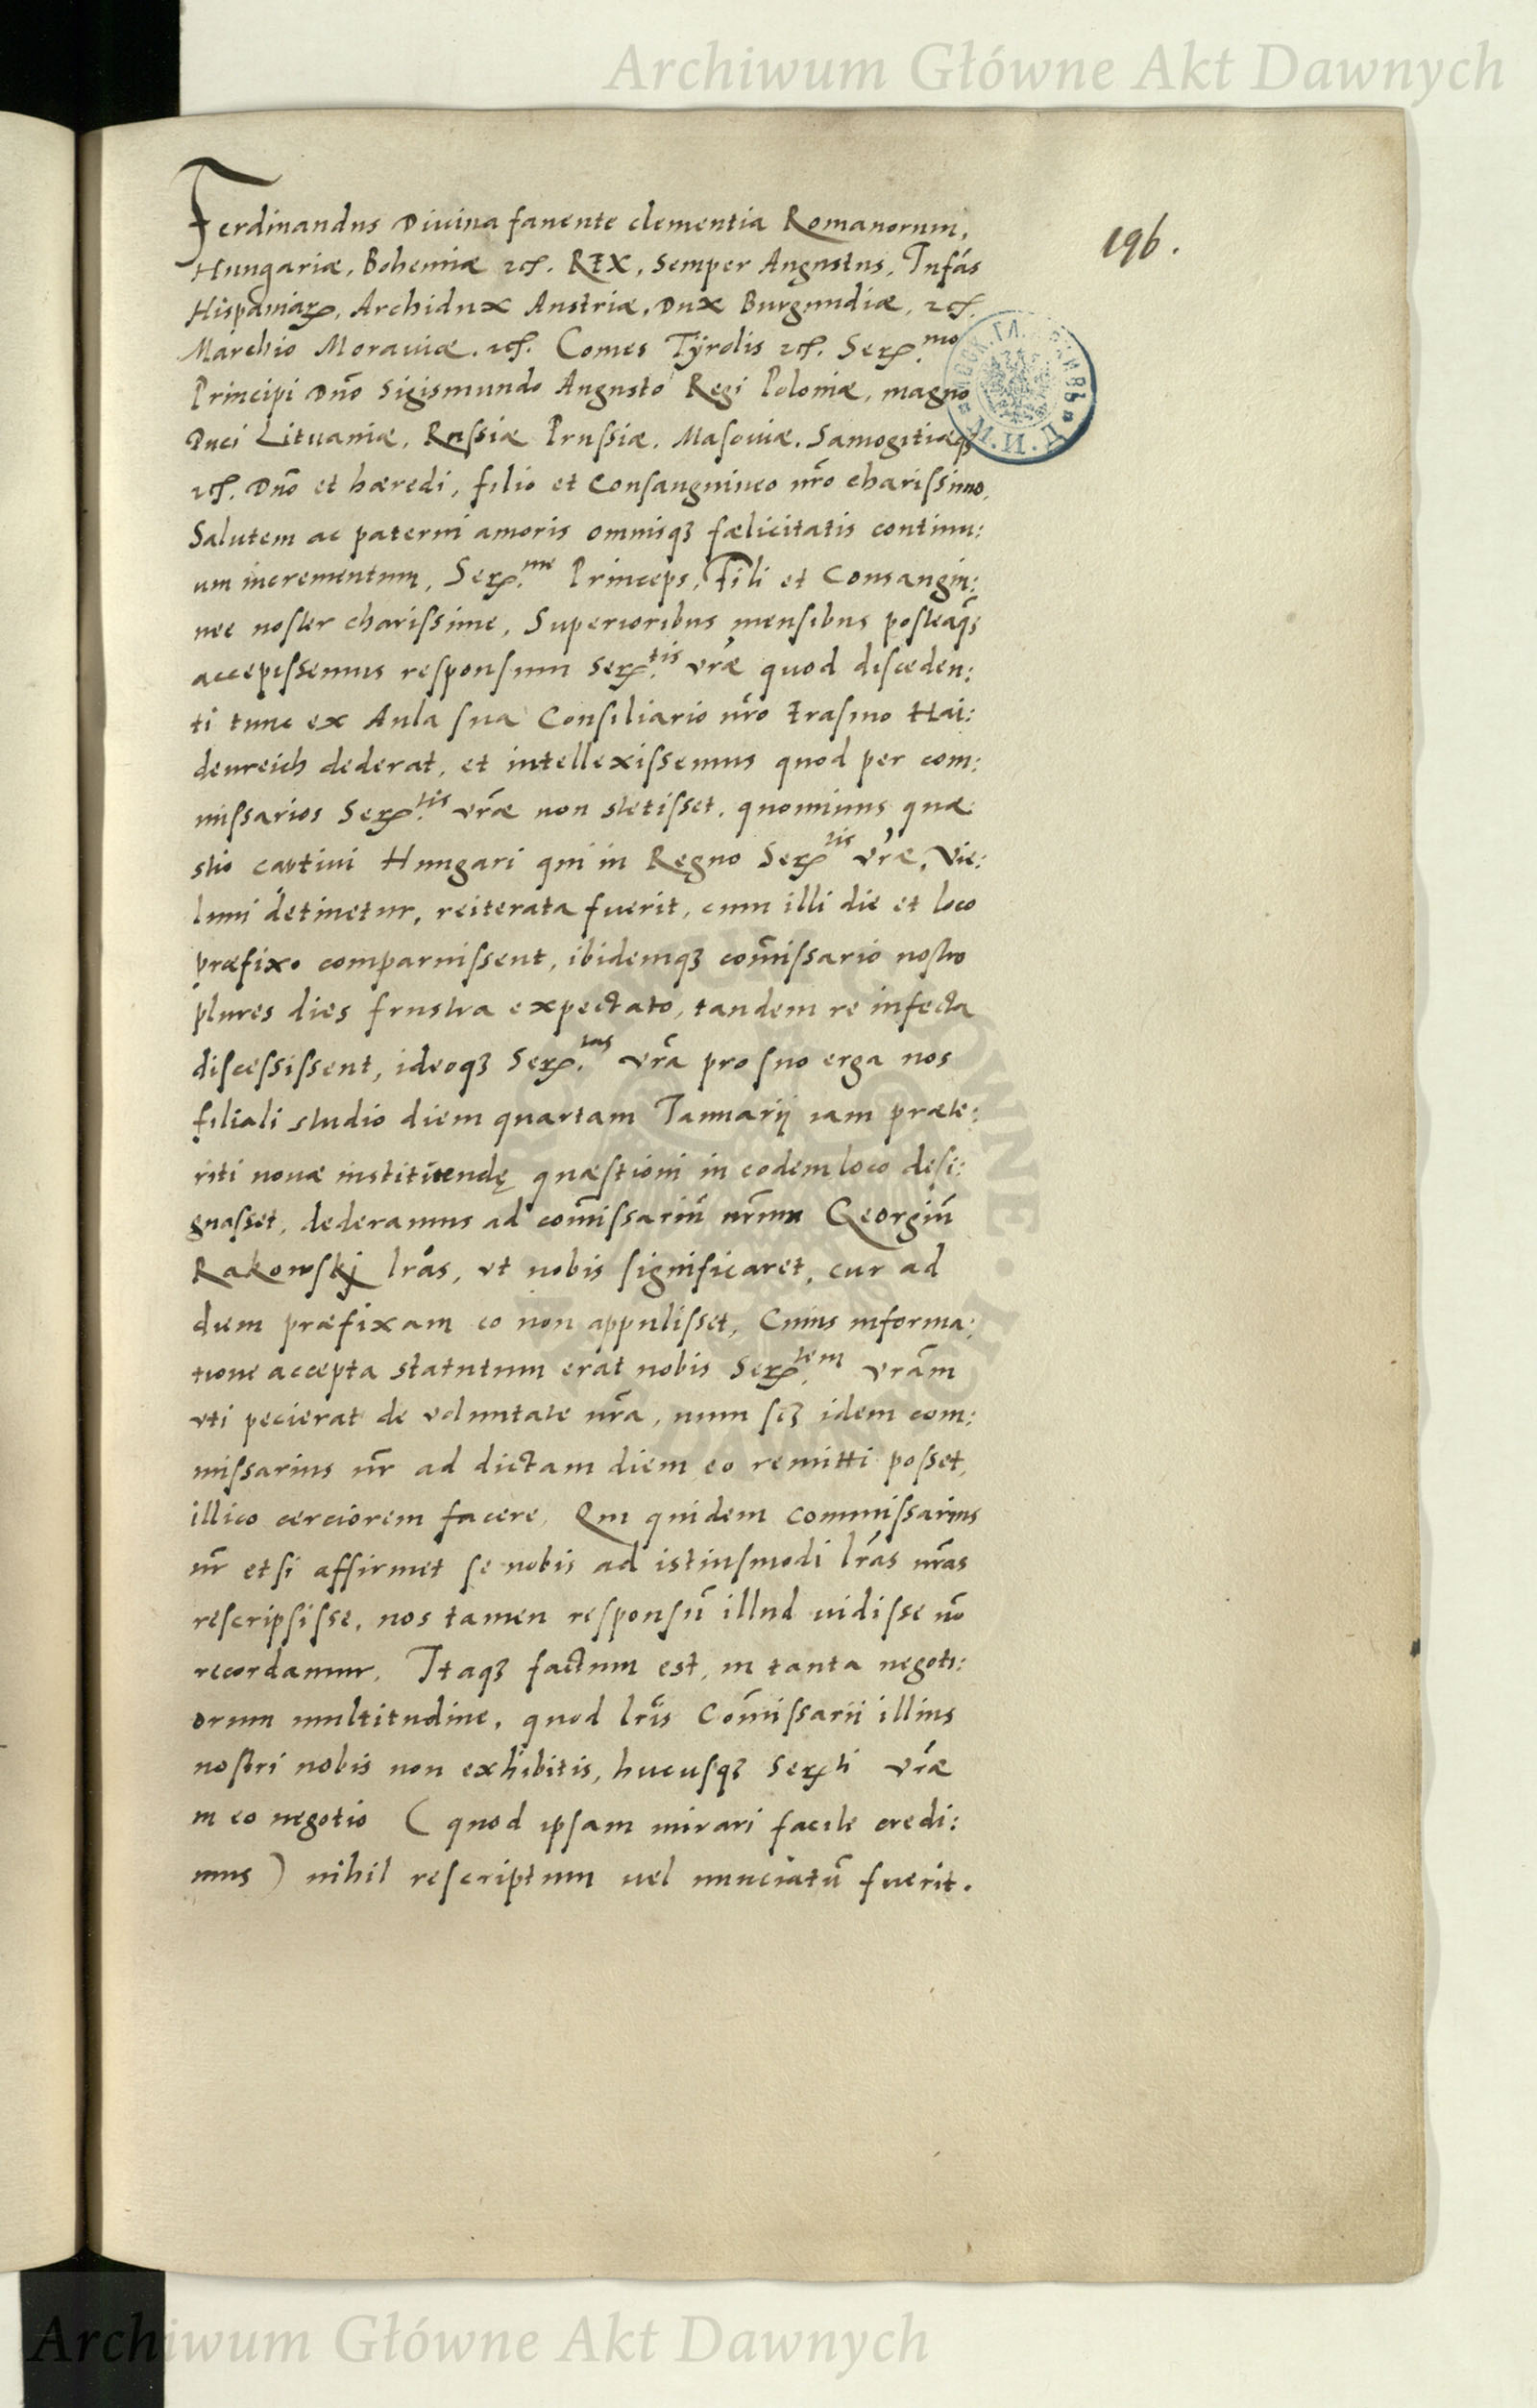 Archiwum Główne Akt Dawnych
196.
Ferdinandus Diuina fauente clementia Romanorum,
Hungariæ, Bohemiæ ꝛcꝭ. REX, semper Augustus, Infās
Hispaniaꝝ, Archidux Austriæ, Dux Burgundiæ, ꝛcꝭ.
Marchio Morauiæ. ꝛcꝭ. Comes Tÿrolis ꝛcꝭ. Serꝝ.mo
Principi Dnō Sigismundo Augusto Regi Poloniæ, magno
Duci Lituaniæ, Russiæ Prussiæ, Masouiæ, Samogitiæqꝫ
ꝛcꝭ. Dnō et hæredi, filio et Consanguineo nrō charissimo,
Salutem ac paterni amoris omnisqꝫ fælicitatis continu:
um incrementum, Serꝝ.me Princeps, Fili et Consangui:
nee noster charissime, Superioribus mensibus posteaq̄ꝫ
accepissemus responsum Serꝝ.tis vrǣ quod disceden:
ti tunc ex Aula sua Consiliario nrō Erasmo Hai:
denreich dederat, et intellexissemus quod per com:
missarios Serꝝ.tis vrāe non stetisset, quominus quæ
stio captiui Hungari qui in Regno Serꝝ tis vrāe, Vie:
luni detinetur, reiterata fuerit, cum illi die et loco
præfixo comparuissent, ibidemqꝫ com̄issario nostro
plures dies frustra expectato, tandem re infecta
discessissent, ideoqꝫ Serꝝ.tas vrā pro suo erga nos
filiali studio diem quartam Januarij iam præte:
riti nouæ instituendę quæstioni in eodem loco desi:
gnasset, dederamus ad com̄issariū nrūm Georgiū
Rakowskj lrās, vt nobis significaret, cur ad
diem præfixam eo non appulisset, Cuius informa:
tione accepta statutum erat nobis Serꝝ.tem vrām
vti pecierat de voluntate nrā, num scꝫ idem com:
missarius nr̄ ad dictam diem eo remitti posset,
illico cerciorem facere, Qui quidem commissarius
nr̄ etsi affirmet se nobis ad istiusmodi lrās nrās
rescripsisse, nos tamen responsū illud uidisse nō
recordamur. Itaqꝫ factum est, in tanta negoti:
orum multitudine, quod lrīs Com̄issarii illius
nostri nobis non exhibitis, hucusqꝫ Serꝝti vrāe
in eo negotio ( quod ipsam mirari facile credi:
mus ) nihil rescriptum uel nunciatū fuerit.
Archiwum Główne Akt Dawnych